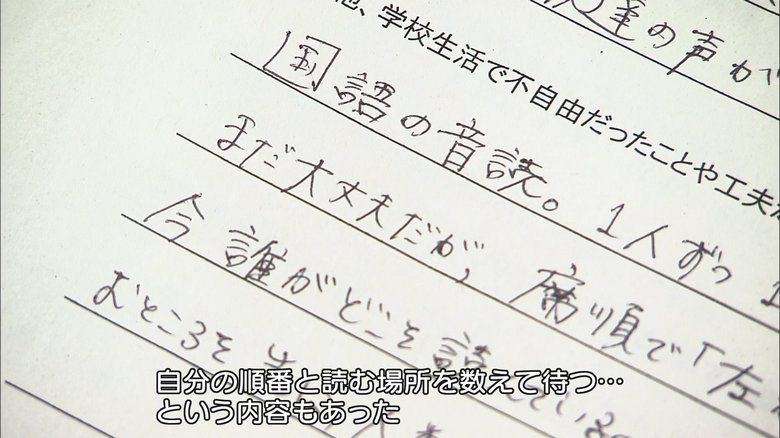 達の声が
他、学校生活で不自由だったことや工夫
国語の音読。1人ずつ
まだ大丈夫だが、席順で「左
今誰がどこを読んでいる
むところを
自分の順番と読む場所を数えて待つ…
という内容もあった